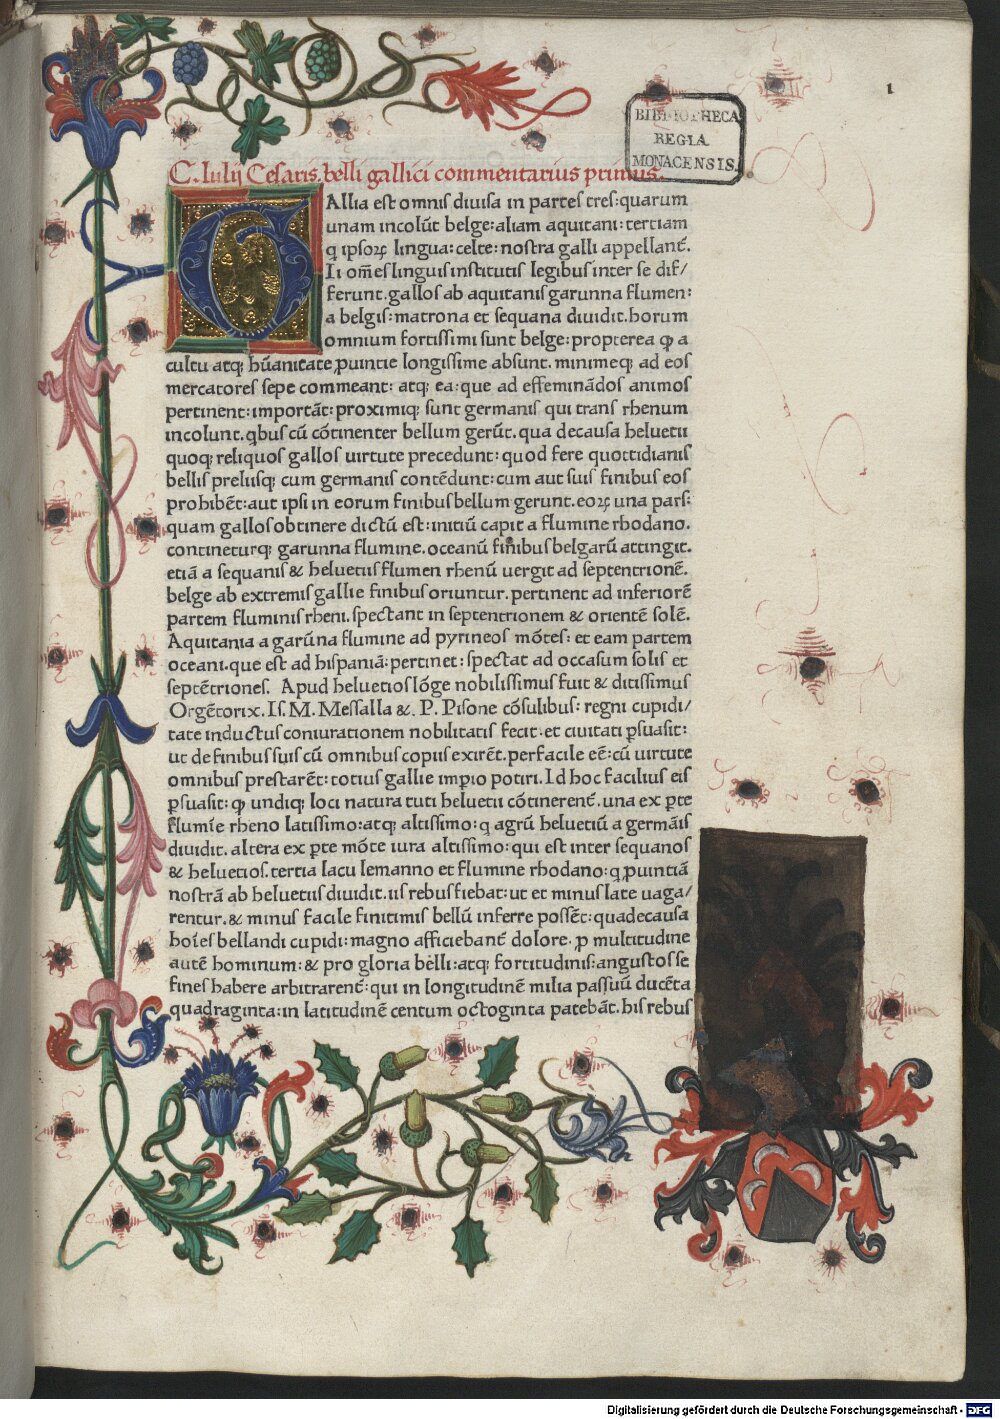 1
BIBLIOTHECA
REGIA
MONACENSIS.
C. Iulij Cesaris. belli gallici commentarius primus.
GAllia est omnis diuisa in partes tres: quarum
unam incolũt belge: aliam aquitani: tertiam
q ipsoꝝ lingua: celte: nostra galli appellant̃.
Ii om̃es linguis institutis legibus inter se dif/
ferunt. gallos ab aquitanis garunna flumen:
a belgis: matrona et sequana diuidit. horum
omnium fortissimi sunt belge: propterea ꝙ a
cultu atqꝫ hũanitate ꝓuintie longissime absunt. minimeqꝫ ad eos
mercatores sepe commeant: atqꝫ ea: que ad effeminãdos animos
pertinent: importãt: proximiqꝫ sunt germanis qui trans rhenum
incolunt. qbus cũ cõtinenter bellum gerũt. qua decausa heluetii
quoqꝫ reliquos gallos uirtute precedunt: quod fere quottidianis
bellis preliisqꝫ cum germanis contẽdunt: cum aut suis finibus eos
prohibẽt: aut ipsi in eorum finibus bellum gerunt. eoꝝ una pars:
quam gallos obtinere dictũ est: initiũ capit a flumine rhodano.
contineturqꝫ garunna flumine. oceanũ finibus belgarũ attingit.
etiã a sequanis & heluetiis flumen rhenũ uergit ad septentrionẽ.
belge ab extremis gallie finibus oriuntur. pertinent ad inferiorẽ
partem fluminis rheni. spectant in septentrionem & orientẽ solẽ.
Aquitania a garũna flumine ad pyrineos mõtes: et eam partem
oceani. que est ad hispaniã: pertinet: spectat ad occasum solis et
septẽtriones. Apud heluetios lõge nobilissimus fuit & ditissimus
Orgẽtorix. Is. M. Messalla &. P. Pisone cõsulibus: regni cupidi/
tate inductus coniurationem nobilitatis fecit. et ciuitati ꝑsuasit:
ut de finibus suis cũ omnibus copiis exirẽt. perfacile eẽ: cũ uirtute
omnibus prestarẽt: totius gallie imꝑio potiri. Id hoc facilius eis
ꝑsuasit: ꝙ undiqꝫ loci natura tuti heluetii cõtinerent̃. una ex ꝑte
flumĩe rheno latissimo: atqꝫ altissimo: q agrũ heluetiũ a germãis
diuidit. altera ex ꝑte mõte iura altissimo: qui est inter sequanos
& heluetios. tertia lacu lemanno et flumine rhodano: q ꝓuintiã
nostrã ab heluetiis diuidit. iis rebus fiebat: ut et minus late uaga/
rentur. & minus facile finitimis bellũ inferre possẽt: quadecausa
hoĩes bellandi cupidi: magno afficiebant̃ dolore. ꝓ multitudine
autẽ hominum: & pro gloria belli: atqꝫ fortitudinis: angustos se
fines habere arbitrarent̃: qui in longitudinẽ milia passuũ ducẽta
quadraginta: in latitudinẽ centum octoginta patebãt. his rebus
Digitalisierung gefördert durch die Deutsche Forschungsgemeinschaft - DFG